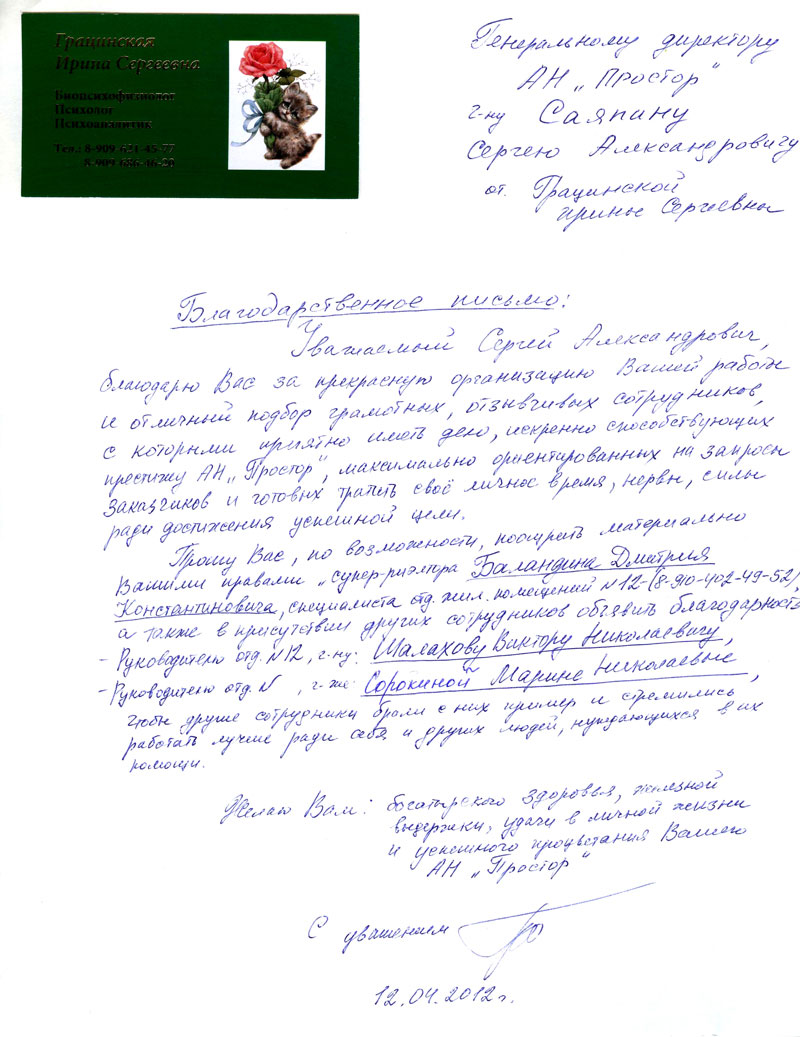 Грацинская
Ирина Сергеевна
Биопсихофизиолог
Психолог
Психоаналитик
Тел.: 8-909-621-45-77
8-909-686-46-20
Генеральному директору
АН „Простор"
г-ну Саяпину
Сергею Александровичу
от Грацинской
Ирины Сергеевны
Благодарственное письмо:
Уважаемый Сергей Александрович,
благодарю Вас за прекрасную организацию Вашей работы
и отличный подбор грамотных, отзывчивых сотрудников,
с которыми приятно иметь дело, искренно способствующих
престижу АН „Простор", максимально ориентированных на запросы
Заказчиков и готовых тратить своё личное время, нервы, силы
ради достижения успешной цели.
Прошу Вас, по возможности, поощрить материально
Вашими правами „супер-риэлтора Баландина Дмитрия
Константиновича, специалиста отд. жил. помещений №12-(8-90-402-49-52),
а также в присутствии других сотрудников объявить благодарность
- Руководителю отд. №12, г-ну: Шалахову Виктору Николаевичу,
- Руководителю отд. № , г-же: Сорокиной Марине Николаевне,
чтобы другие сотрудники брали с них пример и стремились
работать лучше ради себя и других людей, нуждающихся в их
помощи.
Желаю Вам: богатырского здоровья, железной
выдержки, удачи в личной жизни
и успешного процветания Вашего
АН „Простор"
С уважением
12.04.2012г.